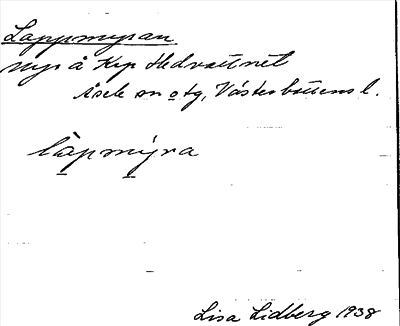 Lappmyran
myr å Krp Hedvattnet
Åsele sn o tg, Västerbottens l.
làpmýra
Lisa Lidberg 1938